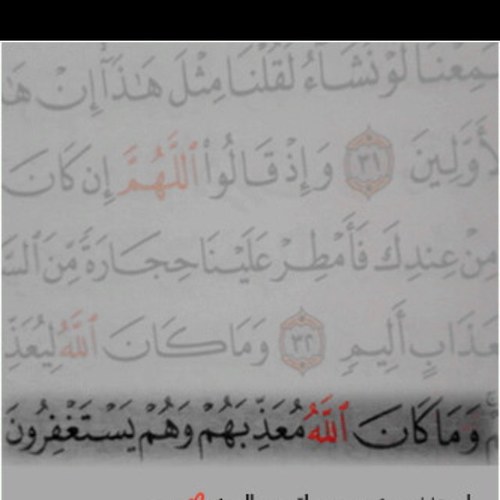 سَمِعْنَا لَوْ نَشَآءُ لَقُلْنَا مِثْلَ هَٰذَآ إِنْ
ٱلْأَوَّلِينَ ٣١ وَإِذْ قَالُوا۟ ٱللَّهُمَّ إِن كَانَ
مِنْ عِندِكَ فَأَمْطِرْ عَلَيْنَا حِجَارَةً مِّنَ
بِعَذَابٍ أَلِيمٍ ٣٢ وَمَا كَانَ ٱللَّهُ
وَمَا كَانَ ٱللَّهُ مُعَذِّبَهُمْ وَهُمْ يَسْتَغْفِرُونَ